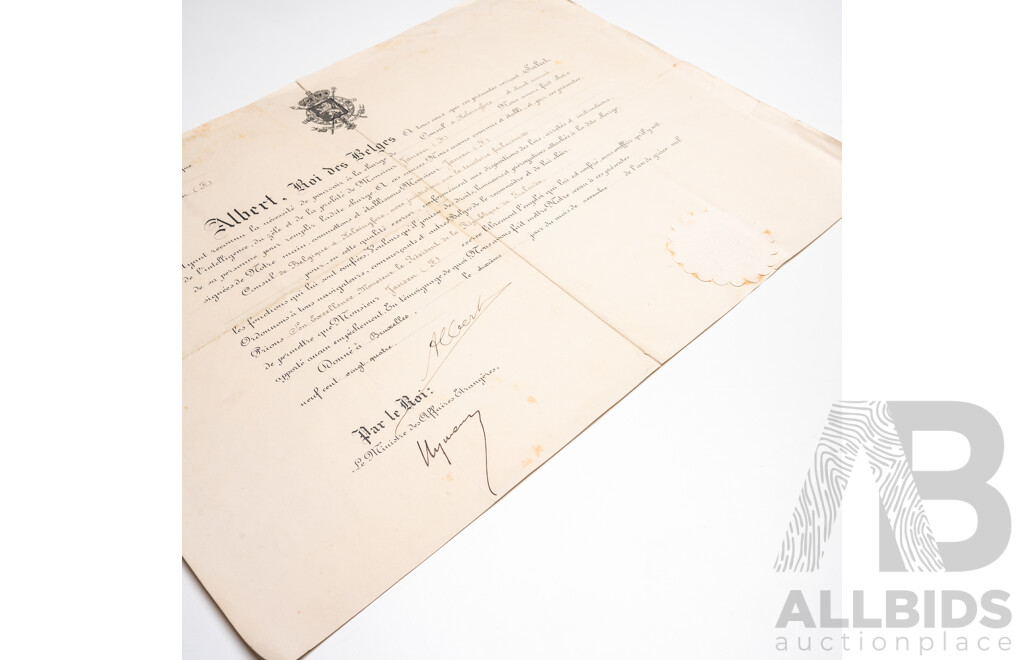 Albert, Roi des Belges A tous ceux qui ces présentes verront Salut.
Ayant reconnu la nécessité de pourvoir à la charge de Consul à Helsingfors et étant assuré
de l'intelligence, du zèle et de la probité de Monsieur Jansen (F.) Nous avons fait choix
de sa personne pour remplir ladite charge. A ces causes Nous avons nommé et établi, et par ces présentes,
signées de Notre main, commettons et établissons Monsieur Jansen (F.)
Consul de Belgique à Helsingfors, avec juridiction sur le territoire finlandais
pour, en cette qualité exercer conformément aux dispositions des lois, arrêtés et instructions
les fonctions qui lui sont confiées. Voulons qu'il jouisse des droits, honneurs et prérogatives attachés à la dite charge
Ordonnons à tous navigateurs, commerçants et autres Belges de le reconnaître et de lui obéir.
Prions Son Excellence Monsieur le Président de la République de Finlande
de permettre que Monsieur Jansen (F.) exerce librement l'emploi qui lui est confié sans souffrir qu'il y soit
apporté aucun empêchement. En témoignage de quoi Nous avons fait mettre Notre sceau à ces présentes
Donné à Bruxelles, le sixième jour du mois de novembre de l'an de grâce mil
neuf cent vingt quatre.
Albert
Par le Roi:
Le Ministre des Affaires Etrangères,
Hymans
AB
ALLBIDS
auctionplace